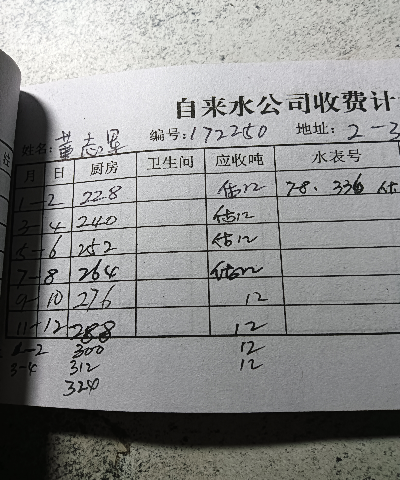 自来水公司收费计
姓名: 董志星 编号: 172250 地址: 2-3
月 日 厨房 卫生间 应收吨 水表号
1-2 228 估12 78. 336 估
3-4 240 估12
5-6 252 估12
7-8 264 估12
9-10 276 12
11-12 288 12
1-2 300 12
3-4 312 12
324